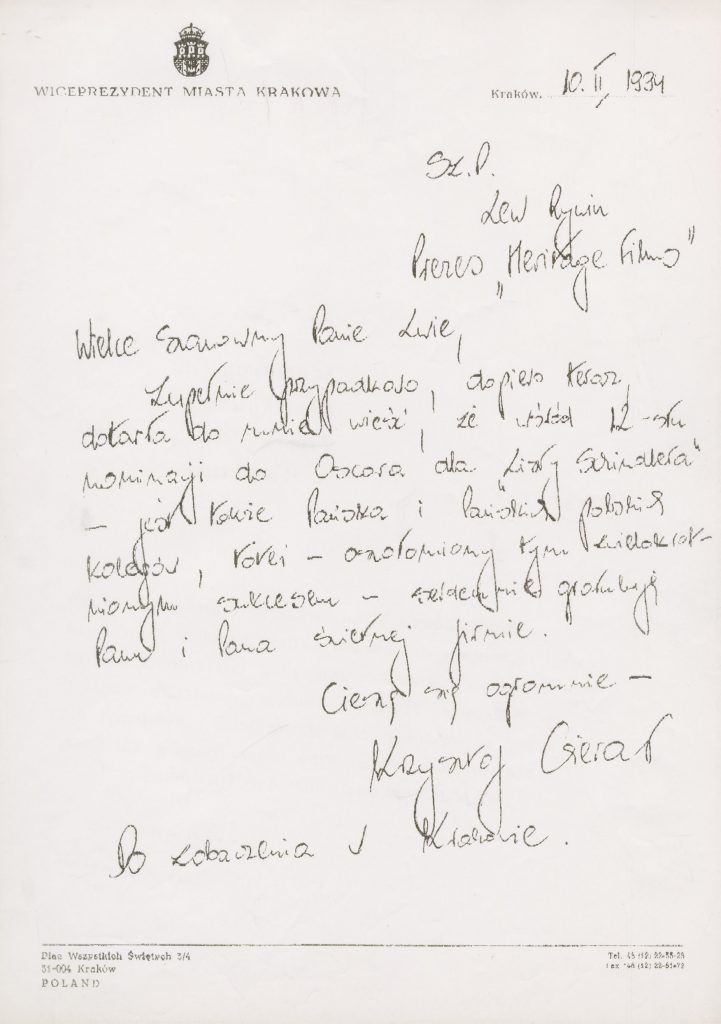 WICEPREZYDENT MIASTA KRAKOWA
Kraków, 10. II 1994
Sz. P.
Lew Rywin
Prezes „Heritage Films”
Wielce Szanowny Panie Lwie,
Zupełnie przypadkowo, dopiero teraz,
dotarła do mnie wieść, że wśród 12-stu
nominacji do Oscara dla „Listy Schindlera”
– jest także Pańska i Pańskich polskich
kolegów, toteż – oszołomiony tym wielokrot-
nionym sukcesem – serdecznie gratuluję
Panu i Pana świetnej firmie.
Cieszę się ogromnie –
Krzysztof Gierat
Do zobaczenia w Krakowie.
Plac Wszystkich Świętych 3/4
31-004 Kraków
POLAND
Tel.
Fax